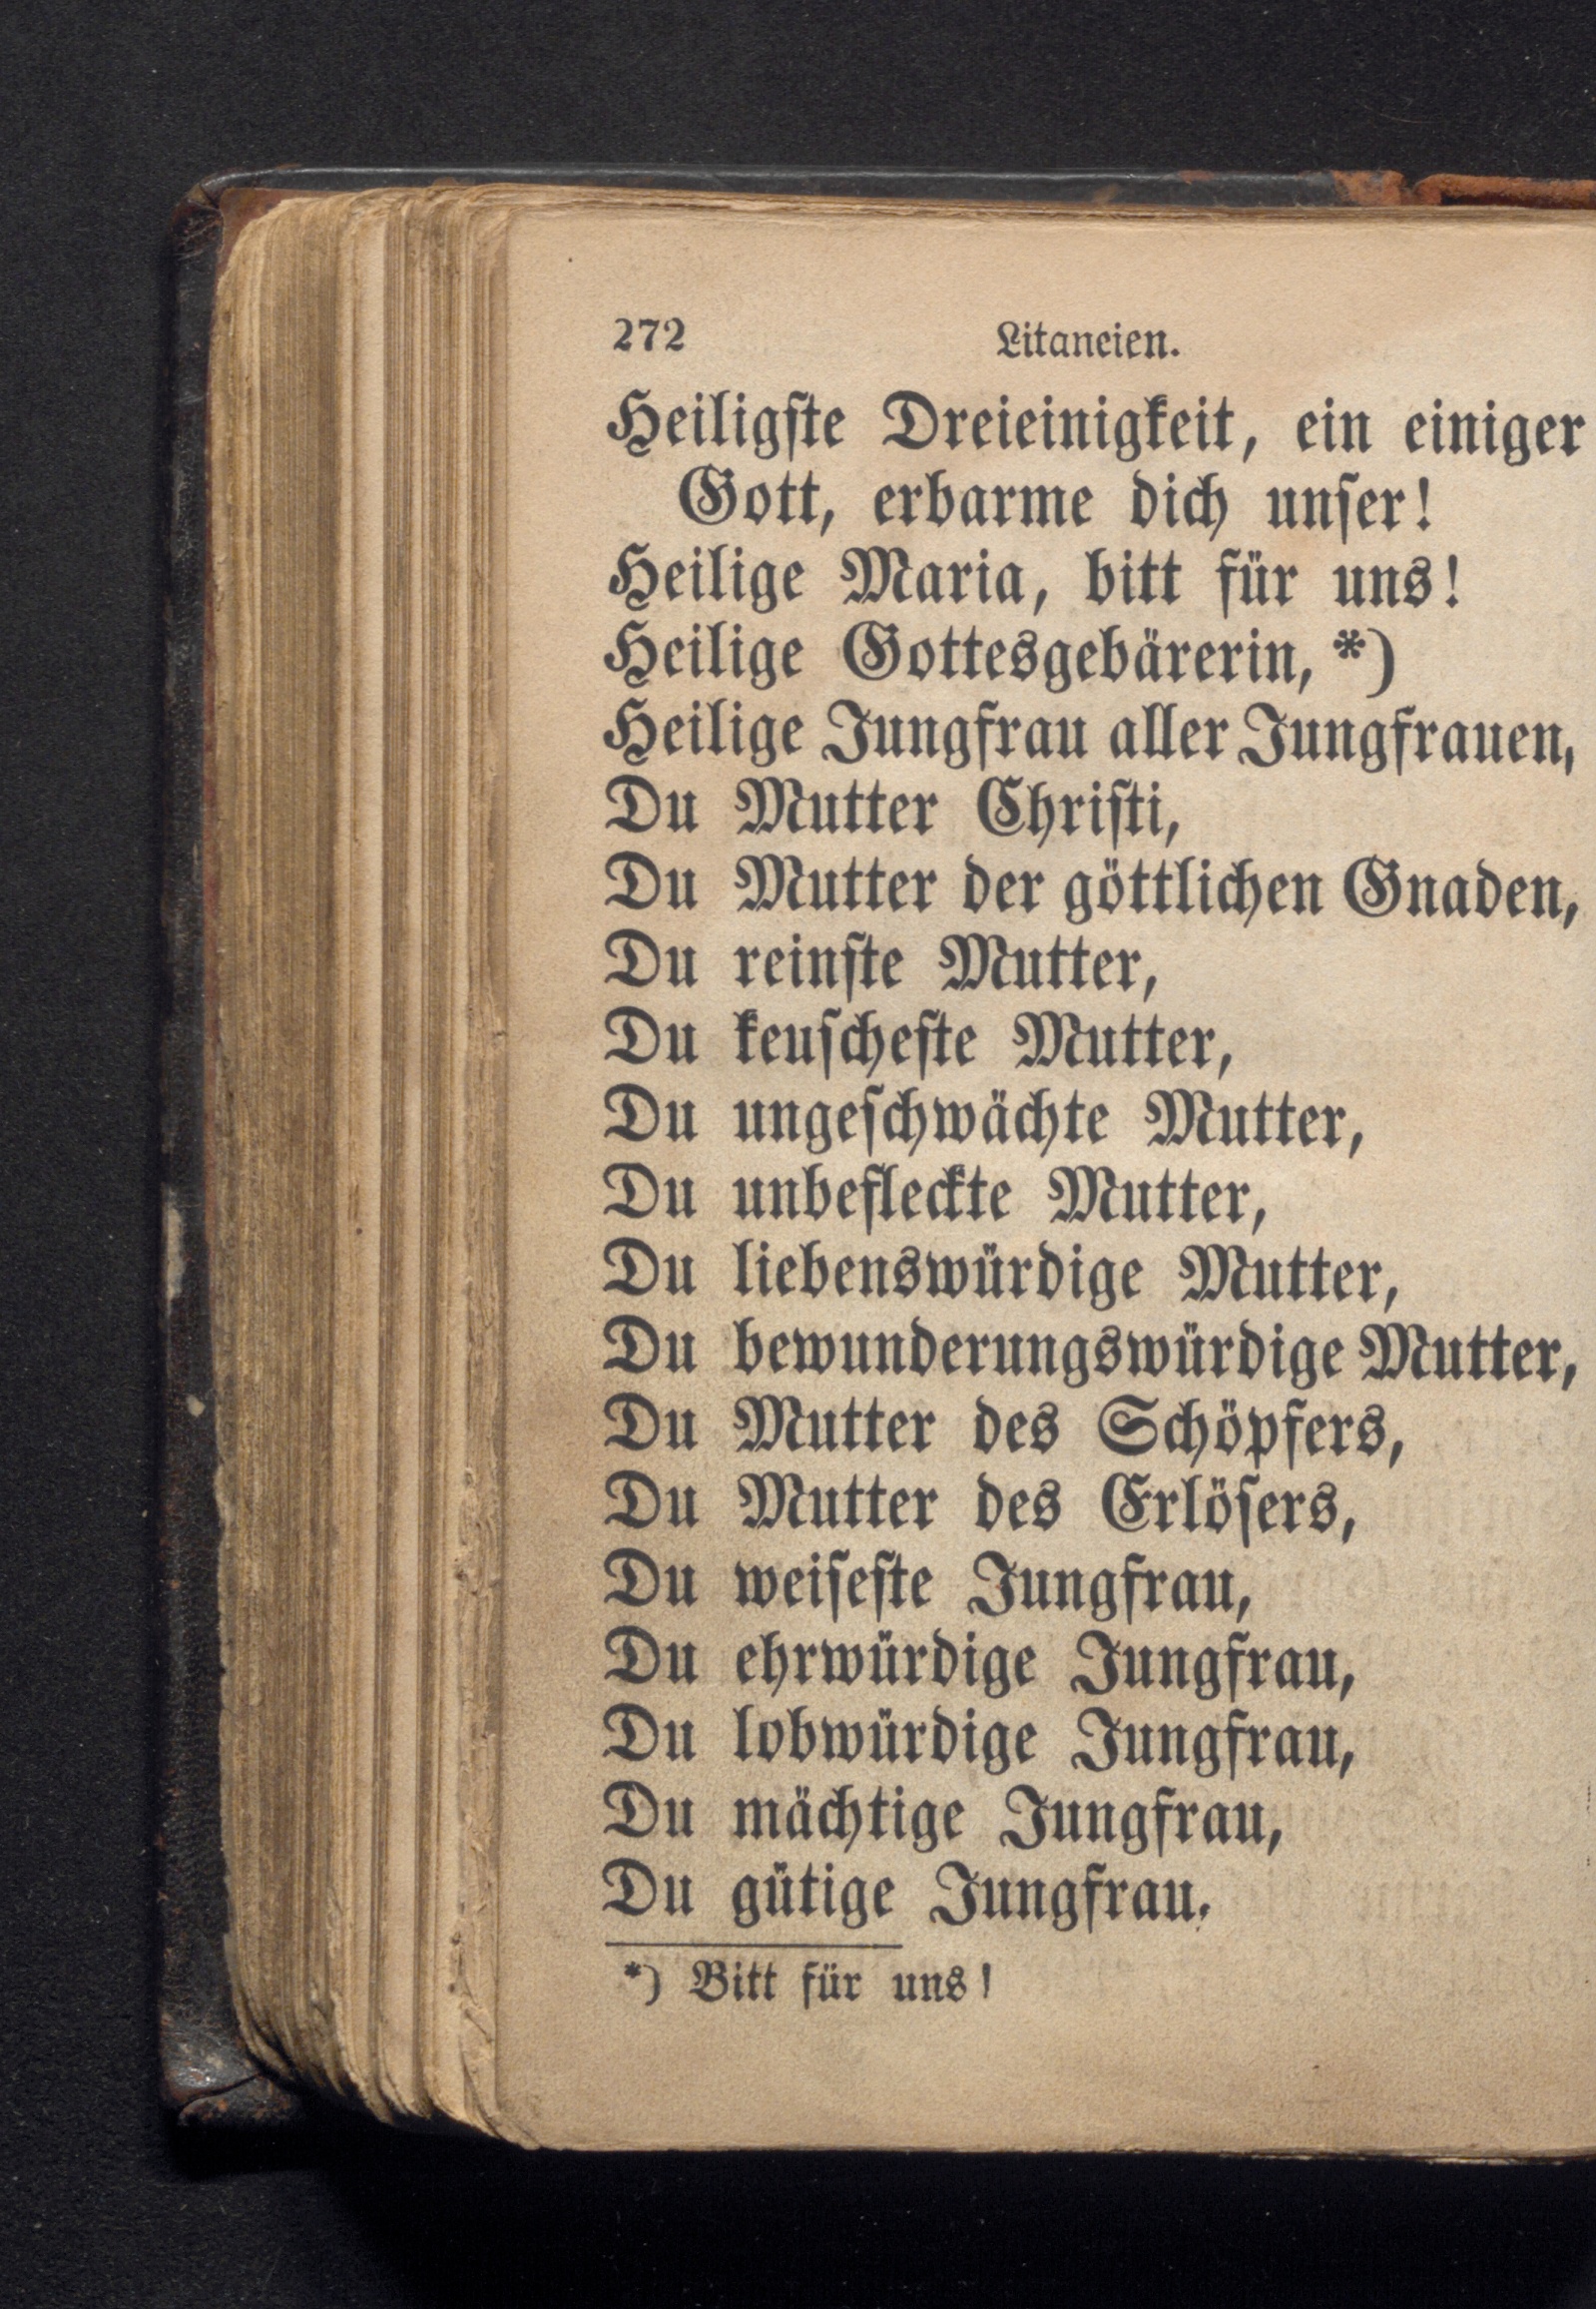 272 Litaneien.
Heiligſte Dreieinigkeit, ein einiger
Gott, erbarme dich unſer!
Heilige Maria, bitt für uns!
Heilige Gottesgebärerin, *)
Heilige Jungfrau aller Jungfrauen,
Du Mutter Chriſti,
Du Mutter der göttlichen Gnaden,
Du reinſte Mutter,
Du keuſcheſte Mutter,
Du ungeſchwächte Mutter,
Du unbefleckte Mutter,
Du liebenswürdige Mutter,
Du bewunderungswürdige Mutter,
Du Mutter des Schöpfers,
Du Mutter des Erlöſers,
Du weiſeſte Jungfrau,
Du ehrwürdige Jungfrau,
Du lobwürdige Jungfrau,
Du mächtige Jungfrau,
Du gütige Jungfrau.
*) Bitt für uns!